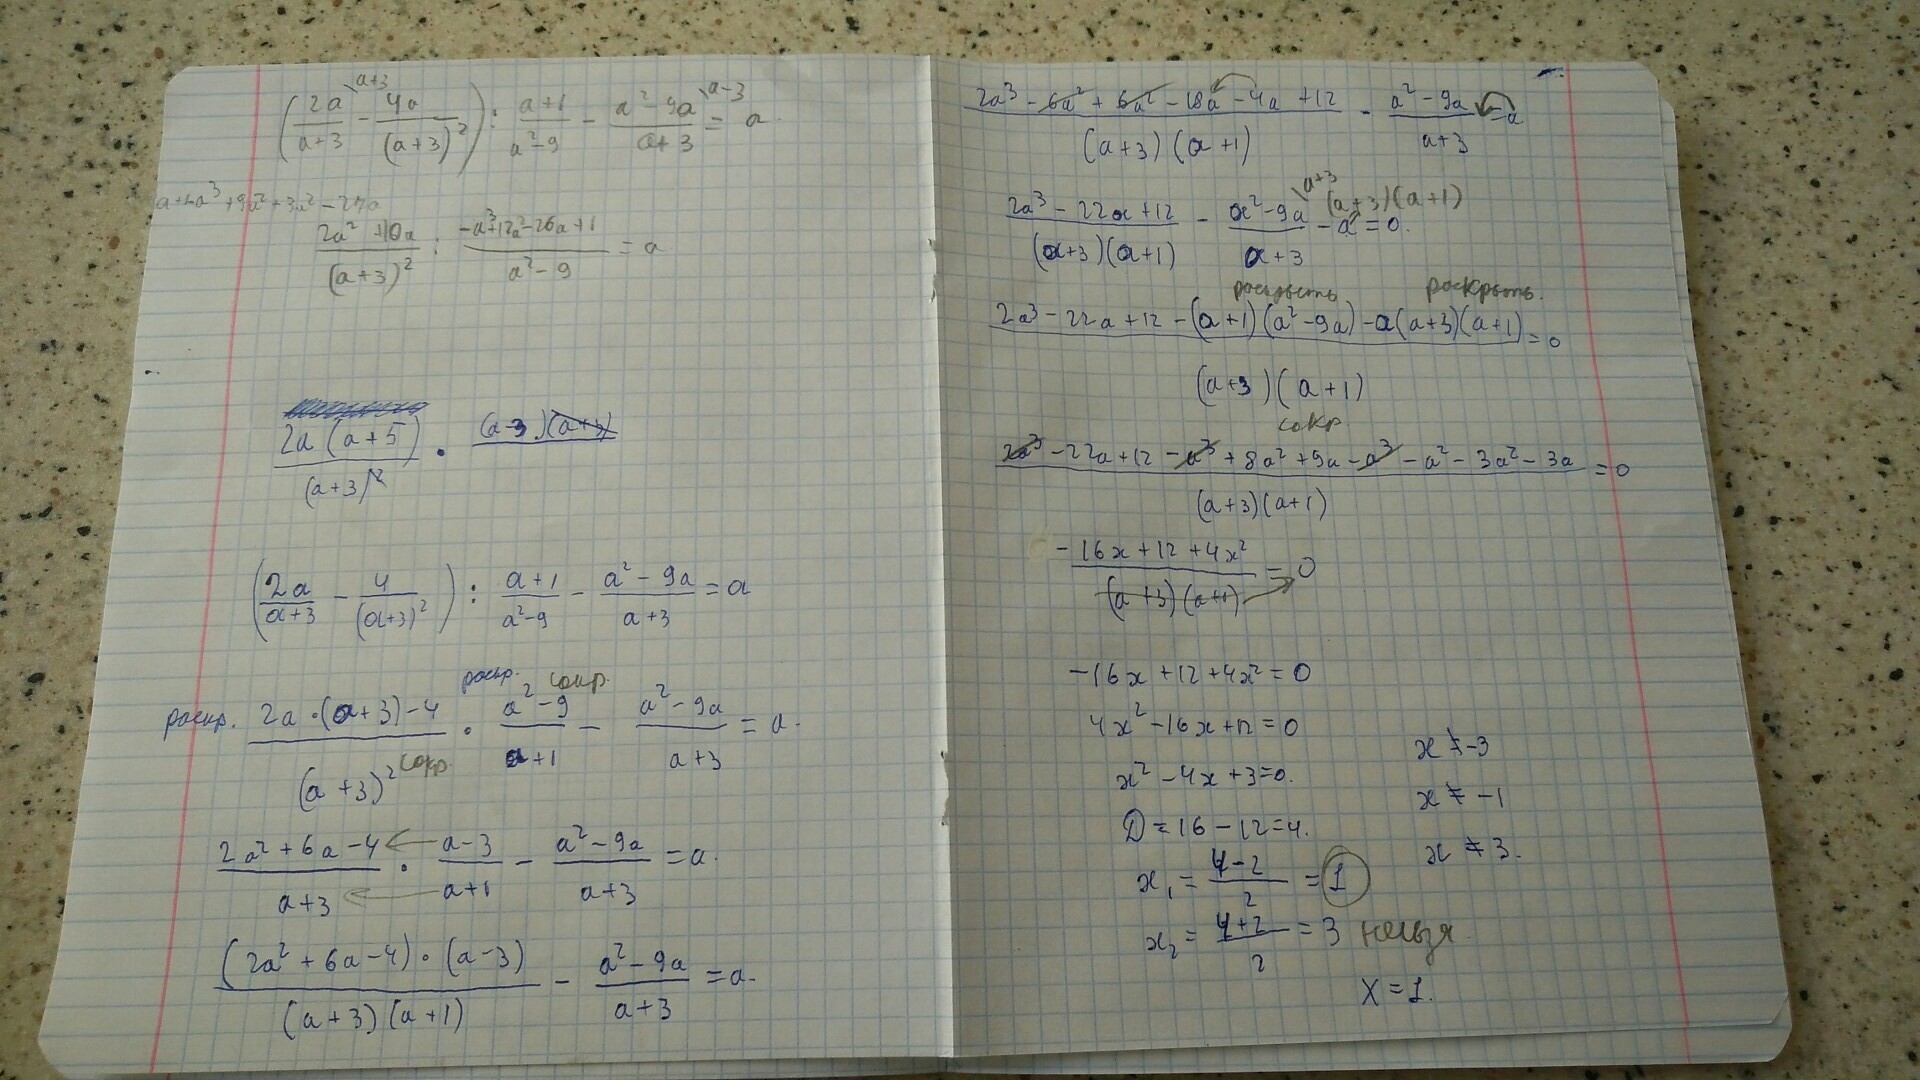 (2a/(a+3) \a+3 - 4a/(a+3)²) : (a+1)/(a²-9) - (a²-9a)/(a+3) \a-3 = a
(2a²+10a)/(a+3)² : (-a³+12a²-26a+1)/(a²-9) = a
2a(a+5)/(a+3)² · (a-3)(a+3)
(2a/(a+3) - 4/(a+3)²) : (a+1)/(a²-9) - (a²-9a)/(a+3) = a
раскр. сокр.
раскр. (2a·(a+3)-4)/(a+3)² · (a²-9)/(a+1) - (a²-9a)/(a+3) = a.
сокр.
(2a²+6a-4)/(a+3) · (a-3)/(a+1) - (a²-9a)/(a+3) = a.
((2a²+6a-4)·(a-3))/((a+3)(a+1)) - (a²-9a)/(a+3) = a.
(2a³-6a²+6a²-18a-4a+12)/((a+3)(a+1)) - (a²-9a)/(a+3) = a
(2a³-22a+12)/((a+3)(a+1)) - (a²-9a)/(a+3) \a+3 - a (a+3)(a+1) = 0.
раскрыть раскрыть.
(2a³-22a+12-(a+1)(a²-9a)-a(a+3)(a+1))/((a+3)(a+1)) = 0
сокр.
(2a³-22a+12-a³+8a²+9a-a³-a²-3a²-3a)/((a+3)(a+1)) = 0
(-16x+12+4x²)/((a+3)(a+1)) = 0
-16x+12+4x²=0
4x²-16x+12=0
x²-4x+3=0.
D=16-12=4.
x₁ = (4-2)/2 = 1
x₂ = (4+2)/2 = 3 нельзя
x ≠ -3
x ≠ -1
x ≠ 3.
X=1.